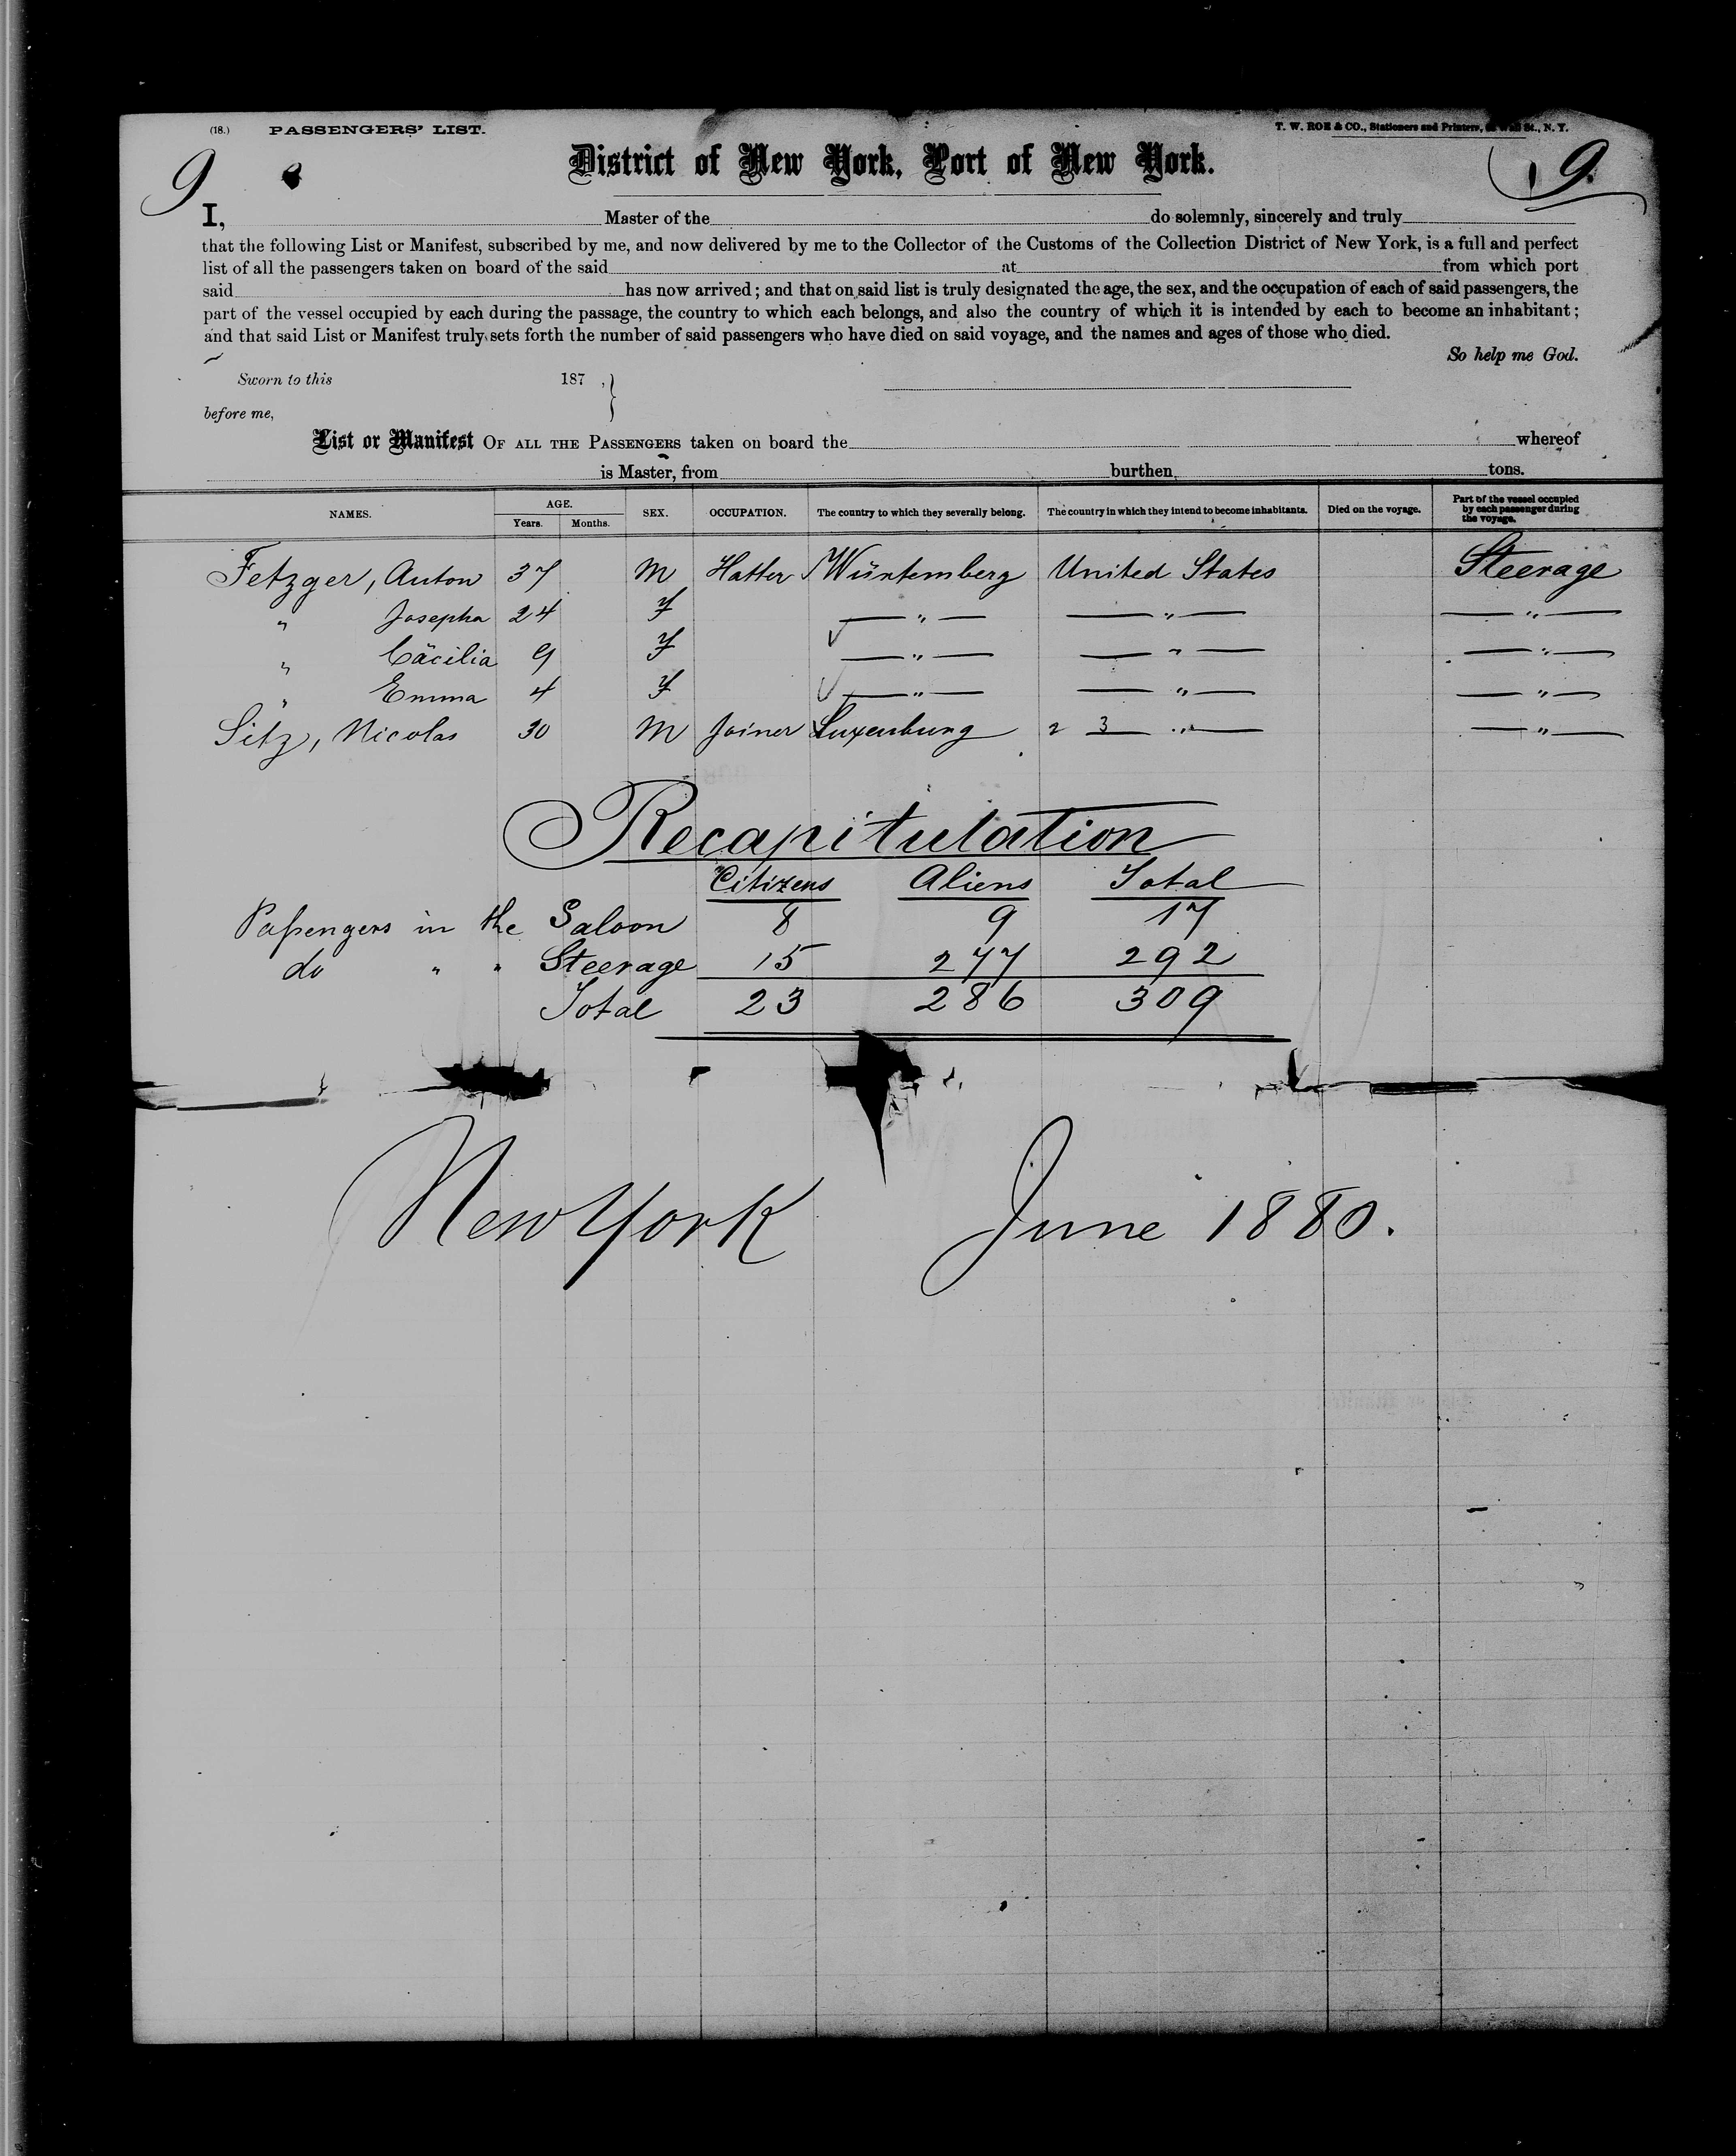 (18.) PASSENGERS' LIST. T. W. ROE & CO., Stationers and Printers, Wall St., N. Y.
9 9.
District of New York, Port of New York.
I, Master of the do solemnly, sincerely and truly
that the following List or Manifest, subscribed by me, and now delivered by me to the Collector of the Customs of the Collection District of New York, is a full and perfect
list of all the passengers taken on board of the said at from which port
said has now arrived; and that on said list is truly designated the age, the sex, and the occupation of each of said passengers, the
part of the vessel occupied by each during the passage, the country to which each belongs, and also the country of which it is intended by each to become an inhabitant;
and that said List or Manifest truly sets forth the number of said passengers who have died on said voyage, and the names and ages of those who died.
So help me God.
Sworn to this 187 , }
before me,
List or Manifest OF ALL THE PASSENGERS taken on board the whereof
is Master, from burthen tons.
NAMES. AGE. Years. Months. SEX. OCCUPATION. The country to which they severally belong. The country in which they intend to become inhabitants. Died on the voyage. Part of the vessel occupied by each passenger during the voyage.
Fetzger, Anton 37 M Hatter Würtemberg United States Steerage
" Josepha 24 F — " — — " — — " —
" Cäcilia 9 F — " — — " — — " —
" Emma 4 F — " — — " — — " —
Sitz, Nicolas 30 M Joiner Luxenburg 2 3 — " — — " —
Recapitulation
Citizens Aliens Total
Passengers in the Saloon 8 9 17
do " " Steerage 15 277 292
Total 23 286 309
New York June 1880.